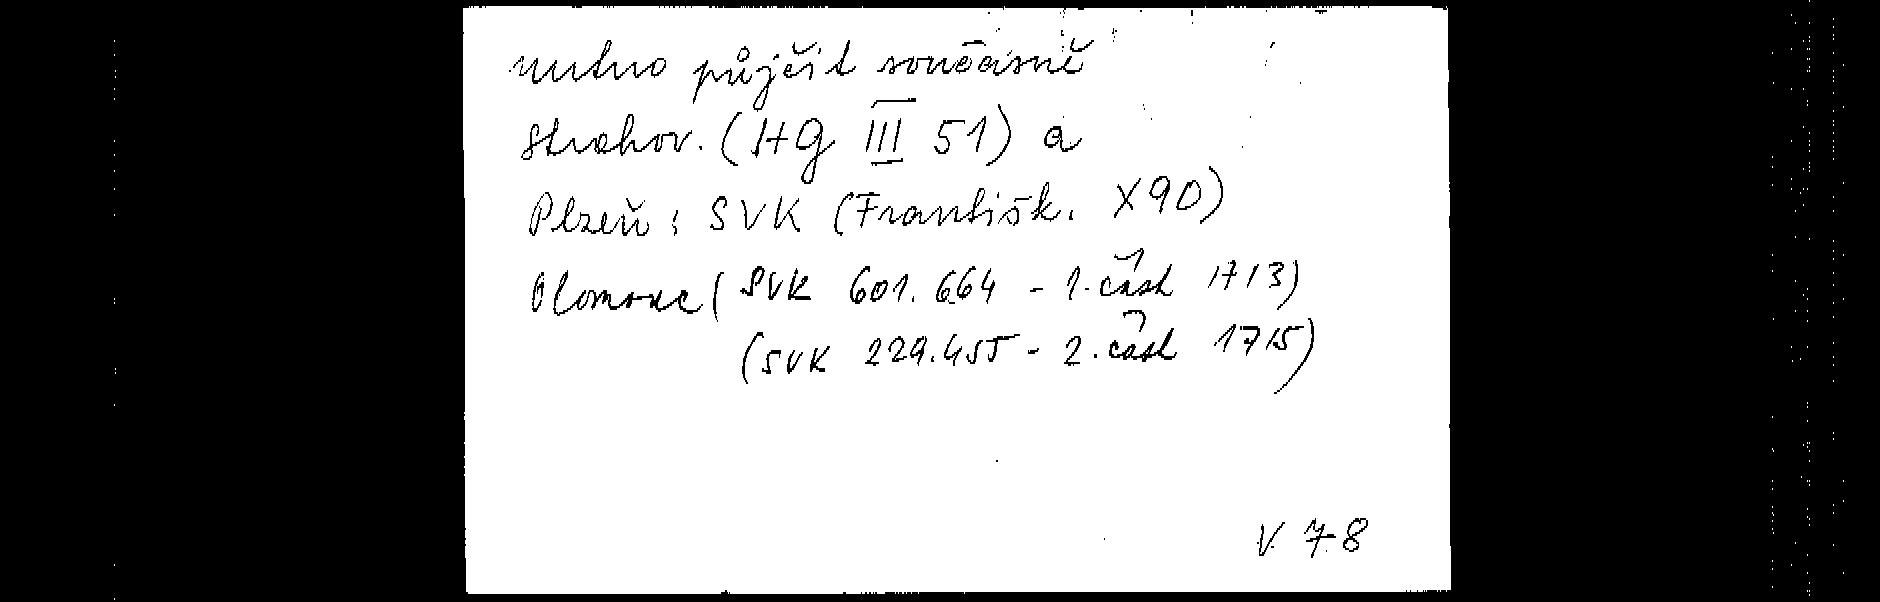 nutno půjčit současně
Strahov. (HG III 51) a
Plzeň: SVK (Františk. X90)
Olomouc (SVK 601.664 - 1. část 1713)
(SVK 229.455 - 2. část 1715)
V 78